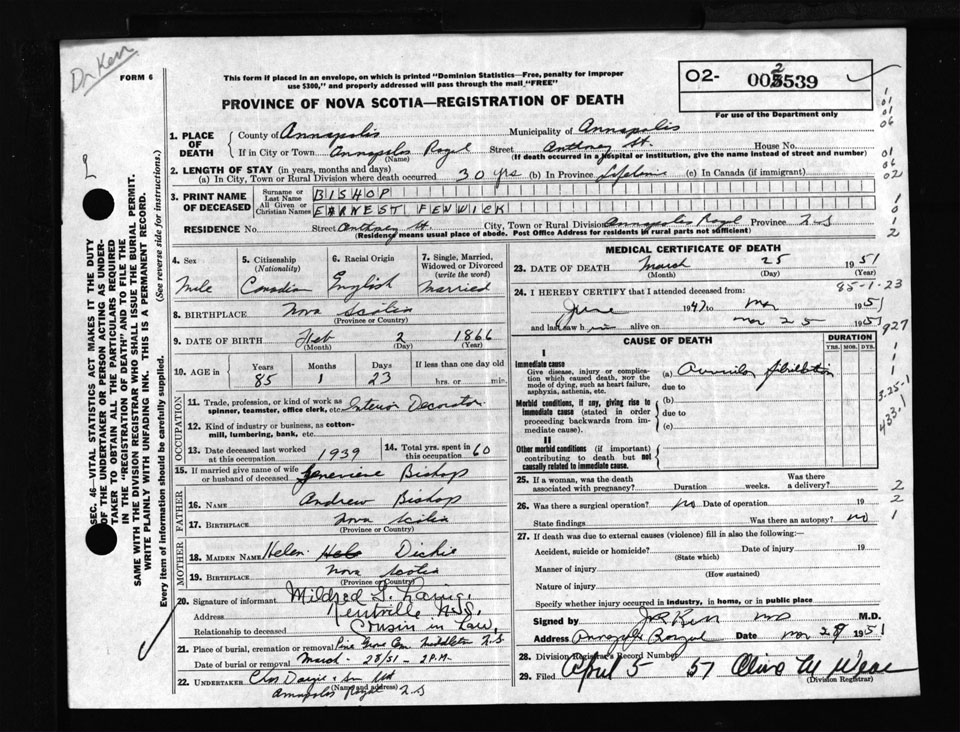 Dr Kerr
FORM 6
This form if placed in an envelope, on which is printed "Dominion Statistics—Free, penalty for improper
use $300," and properly addressed will pass through the mail "FREE"
PROVINCE OF NOVA SCOTIA—REGISTRATION OF DEATH
O2- 539
For use of the Department only
1. PLACE OF DEATH
County of Annapolis Municipality of Annapolis
If in City or Town Annapolis Royal Street Anthony St. House No.
(Name) (If death occurred in a hospital or institution, give the name instead of street and number)
2. LENGTH OF STAY (in years, months and days)
(a) In City, Town or Rural Division where death occurred 30 yrs (b) In Province Lifetime (c) In Canada (if immigrant)
3. PRINT NAME OF DECEASED
Surname or Last Name BISHOP
All Given or Christian Names EARNEST FENWICK
RESIDENCE No. Street Anthony St. City, Town or Rural Division Annapolis Royal Province N.S
(Residency means usual place of abode. Post Office Address for residents in rural parts not sufficient)
4. Sex
Male
5. Citizenship (Nationality)
Canadian
6. Racial Origin
English
7. Single, Married, Widowed or Divorced (write the word)
Married
8. BIRTHPLACE Nova Scotia
(Province or Country)
9. DATE OF BIRTH Feb 2 1866
(Month) (Day) (Year)
10. AGE in Years Months Days If less than one day old
85 1 23 hrs. or min.
OCCUPATION
11. Trade, profession, or kind of work as
spinner, teamster, office clerk, etc. Interior Decorator
12. Kind of industry or business, as cotton-
mill, lumbering, bank, etc.
13. Date deceased last worked
at this occupation 1939
14. Total yrs. spent in
this occupation 60
15. If married give name of wife
or husband of deceased Genevieve Bishop
FATHER
16. NAME Andrew Bishop
17. BIRTHPLACE Nova Scotia
(Province or Country)
MOTHER
18. MAIDEN NAME Helen Dickie
19. BIRTHPLACE Nova Scotia
(Province or Country)
20. Signature of informant Mildred
Address Kentville N.S.
Relationship to deceased Cousin in Law,
21. Place of burial, cremation or removal Pine Grove Cem Middleton N.S
Date of burial or removal March - 28/51 - 2 P.M.
22. UNDERTAKER Chas & Son Ltd
(Name and address)
Annapolis Royal N.S
MEDICAL CERTIFICATE OF DEATH
23. DATE OF DEATH March 25 1951
(Month) (Day) (Year)
85-1-23
24. I HEREBY CERTIFY that I attended deceased from:
June 1947 to Mar 1951
and last saw him alive on Mar 25 1951
CAUSE OF DEATH
DURATION
YRS. MOS. DYS.
I
Immediate cause
Give disease, injury or complica-
tion which caused death, NOT the
mode of dying, such as heart failure,
asphyxia, asthenia, etc.
(a) Auricular fibrillation
due to
Morbid conditions, if any, giving rise to
immediate cause (stated in order
proceeding backwards from im-
mediate cause).
(b)
due to
(c)
II
Other morbid conditions (if important)
contributing to death but not
causally related to immediate cause.
927
3-25-1
433.1
25. If a woman, was the death
associated with pregnancy? Duration weeks. Was there
a delivery?
26. Was there a surgical operation? no Date of operation 19
State findings Was there an autopsy? no
27. If death was due to external causes (violence) fill in also the following:—
Accident, suicide or homicide? Date of injury 19
(State which)
Manner of injury
(How sustained)
Nature of injury
Specify whether injury occurred in industry, in home, or in public place
Signed by Kerr MD M.D.
Address Annapolis Royal Date Mar 28 1951
28. Division Registrar's Record Number
29. Filed April 5 51
(Division Registrar)
SEC. 46—VITAL STATISTICS ACT MAKES IT THE DUTY
OF THE UNDERTAKER OR PERSON ACTING AS UNDER-
TAKER TO OBTAIN ALL THE PARTICULARS REQUIRED
IN THE "REGISTRATION OF DEATH" AND TO FILE THE
SAME WITH THE DIVISION REGISTRAR WHO SHALL ISSUE THE BURIAL PERMIT.
WRITE PLAINLY WITH UNFADING INK. THIS IS A PERMANENT RECORD.
Every item of information should be carefully supplied. (See reverse side for instructions.)